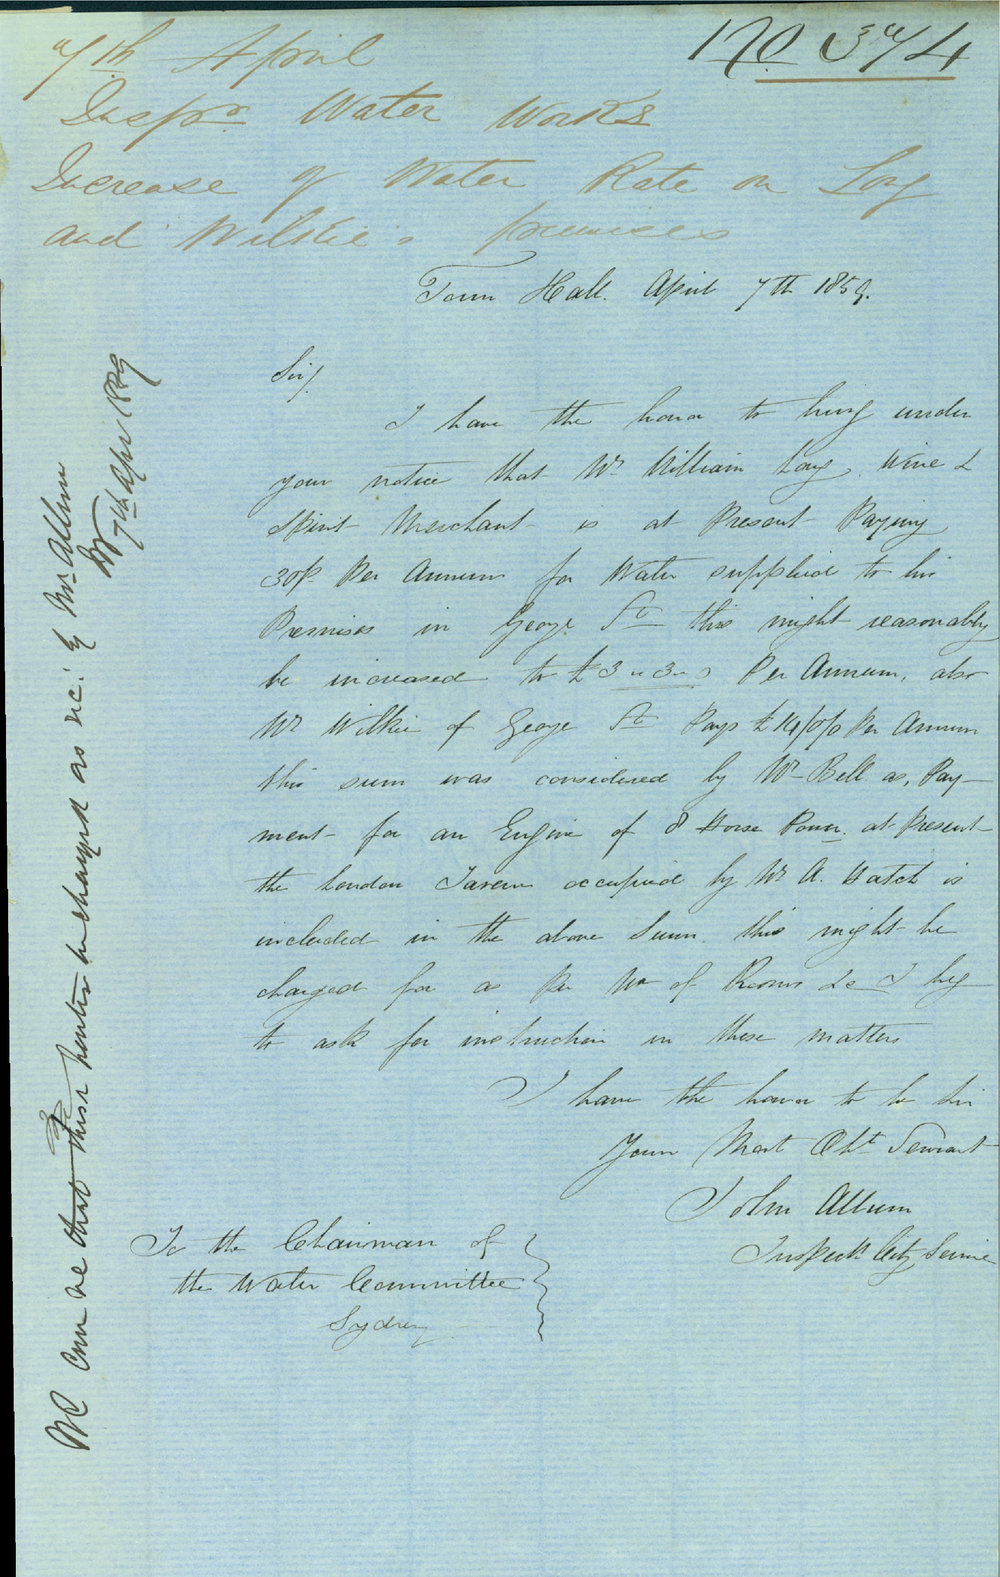 7th April
No 374
Inspr Water Works
Increase of Water Rate on Long
and Wilkie's premises
Town Hall. April 7th 1859.
Sir/
I have the honor to bring under
your notice that Mr William Long, Wine &
Spirit Merchant is at Present Paying
30/- Per Annum for Water supplied to his
Premises in George St this might reasonably
be increased to £3 " 3 " 0 Per Annum, also
Mr Wilkie of George St Pays £14/0/0 Per Annum
this sum was considered by Mr Bell as, Pay-
ment for an Engine of 8 Horse Power. at Present
the London Tavern occupied by Mr A. Hatch is
included in the above Sum this might be
charged for as Per No of Rooms &c I beg
to ask for instruction in these matters
I have the honor to be Sir
Your Most Obt Servant
John Allum
Inspectr City Service
To the Chairman of
the Water Committee
Sydney
WC Com re that these rents be charged as rec: by Mr Allum
7th Apr 1859